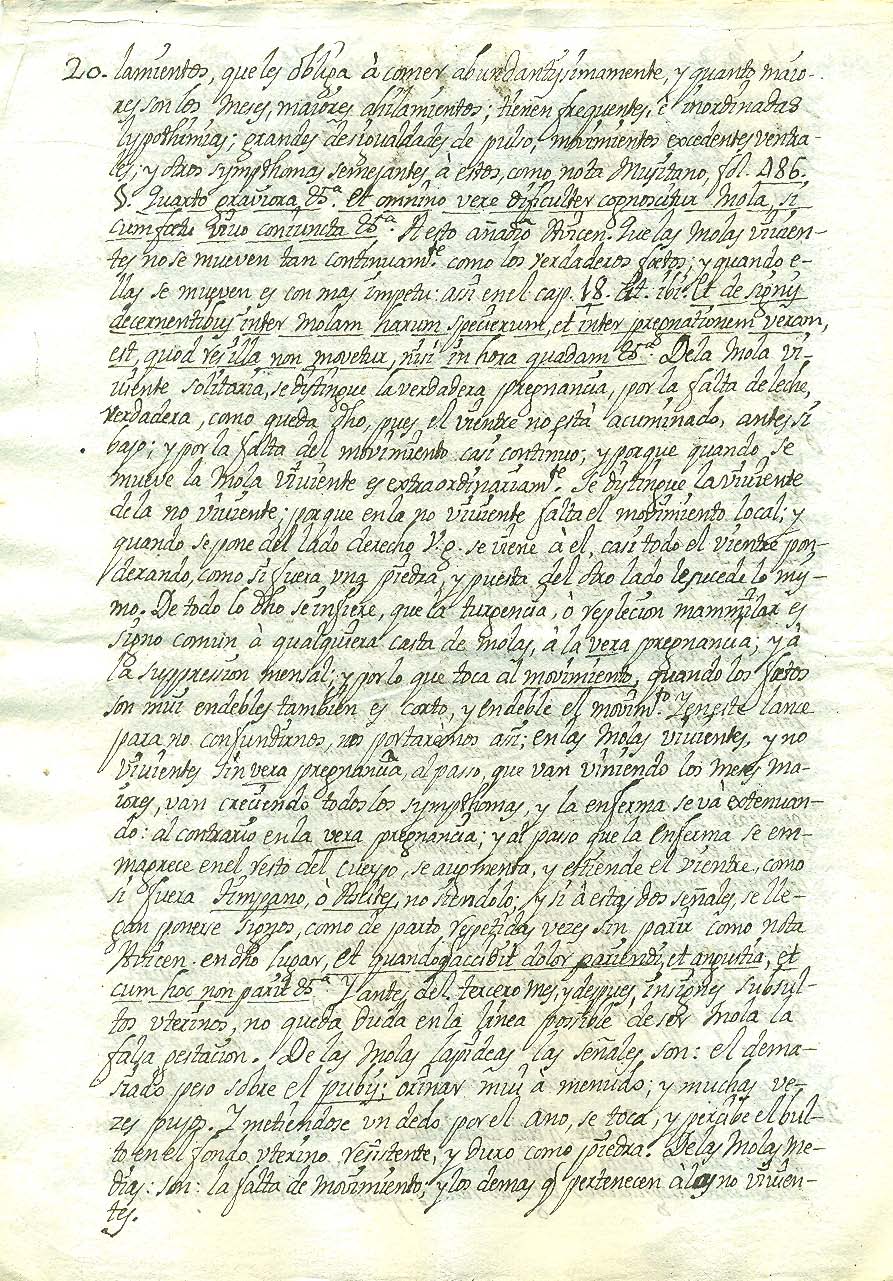 20. lamientos, que les obliga à comer abundantissimamente, y quanto maio-
res son los meses, maiores ahilamientos; tienen frequentes, è inordinadas
lypothimias; grandes desigualdades de pulso, movimientos excedentes ventra-
les; y otros symphomas semejantes à estos, como nota Musitano, fol. 486.
§. Quarto graviora &ª. et omnino vere difficulter cognoscitur Mola, si
cum foetu vivo coniuncta &ª. A esto añadio Avicen. Que las Molas vivien-
tes no se mueven tan continuamte. como los verdaderos foetos; y quando e-
llas se mueven es con mas impetu: asi en el cap. 18. ibi. Et de signis
decernentibus inter Molam harum specierum, et inter pregnationem veram,
est, quod res illa non movetur, nisi in hora quadam &ª. De la Mola vi-
viente solitaria, se distingue la verdadera pregnancia, por la falta de leche,
verdadera, como queda dho, pues el vientre no està acuminado, antes si
bajo; y por la falta del movimiento casi continuo; y porque quando se
mueve la Mola viviente es extraordinariamte. Se distingue la viviente
de la no viviente; porque en la no viviente falta el movimiento local; y
quando se pone del lado derecho V.g. se viene à el, casi todo el vientre pon-
derando, como si fuera una piedra, y puesta del otro lado le sucede lo mis-
mo. De todo lo dho se infiere, que la turgencia, ò replecion mammilar es
signo comun à qualquiera casta de Molas, à la vera pregnancia; y à
la suppression mensal; y por lo que toca al movimiento, quando los foetos
son mui endebles tambien es corto, y endeble el movimto. Y en este lance
para no confundirnos, nos portarèmos asi; en las Molas vivientes, y no
vivientes sin vera pregnancia, al passo, que van viniendo los meses ma-
iores, van creciendo todos los symphomas, y la enferma se và extenuan-
do: al contrario en la vera pregnancia; y al passo que la Enferma se em-
magrece en el resto del cuerpo, se augmenta, y estiende el vientre, como
si fuera timpano, ò Ascites, no siendolo; y si à estas dos señales, se lle-
gan ponerse signos, como de parto repetidas vezes sin parir como nota
Avicen. en dho lugar, et quandoq accidit dolor pariendi, et angustia, et
cum hoc non parit &ª. Y antes del tercero mes, y despues insignes subsul-
tos uterinos, no queda duda en la linea possible de ser Mola la
falsa gestacion. De las Molas lapideas las señales son: el dema-
siado peso sobre el pubis; orinar mui à menudo; y muchas ve-
zes pujos. Y metiendose un dedo por el ano, se toca, y percibe el bul-
to en el fondo uterino resistente, y duro como piedra. De las Molas me-
dias: son: la falta de movimiento, y los demas q pertenecen à las no vivien-
tes.